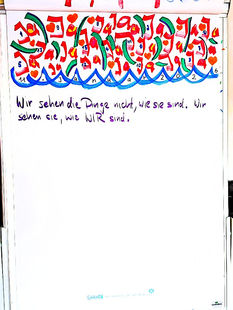 Wir sehen die Dinge nicht, wie sie sind. Wir
sehen sie, wie WIR sind.